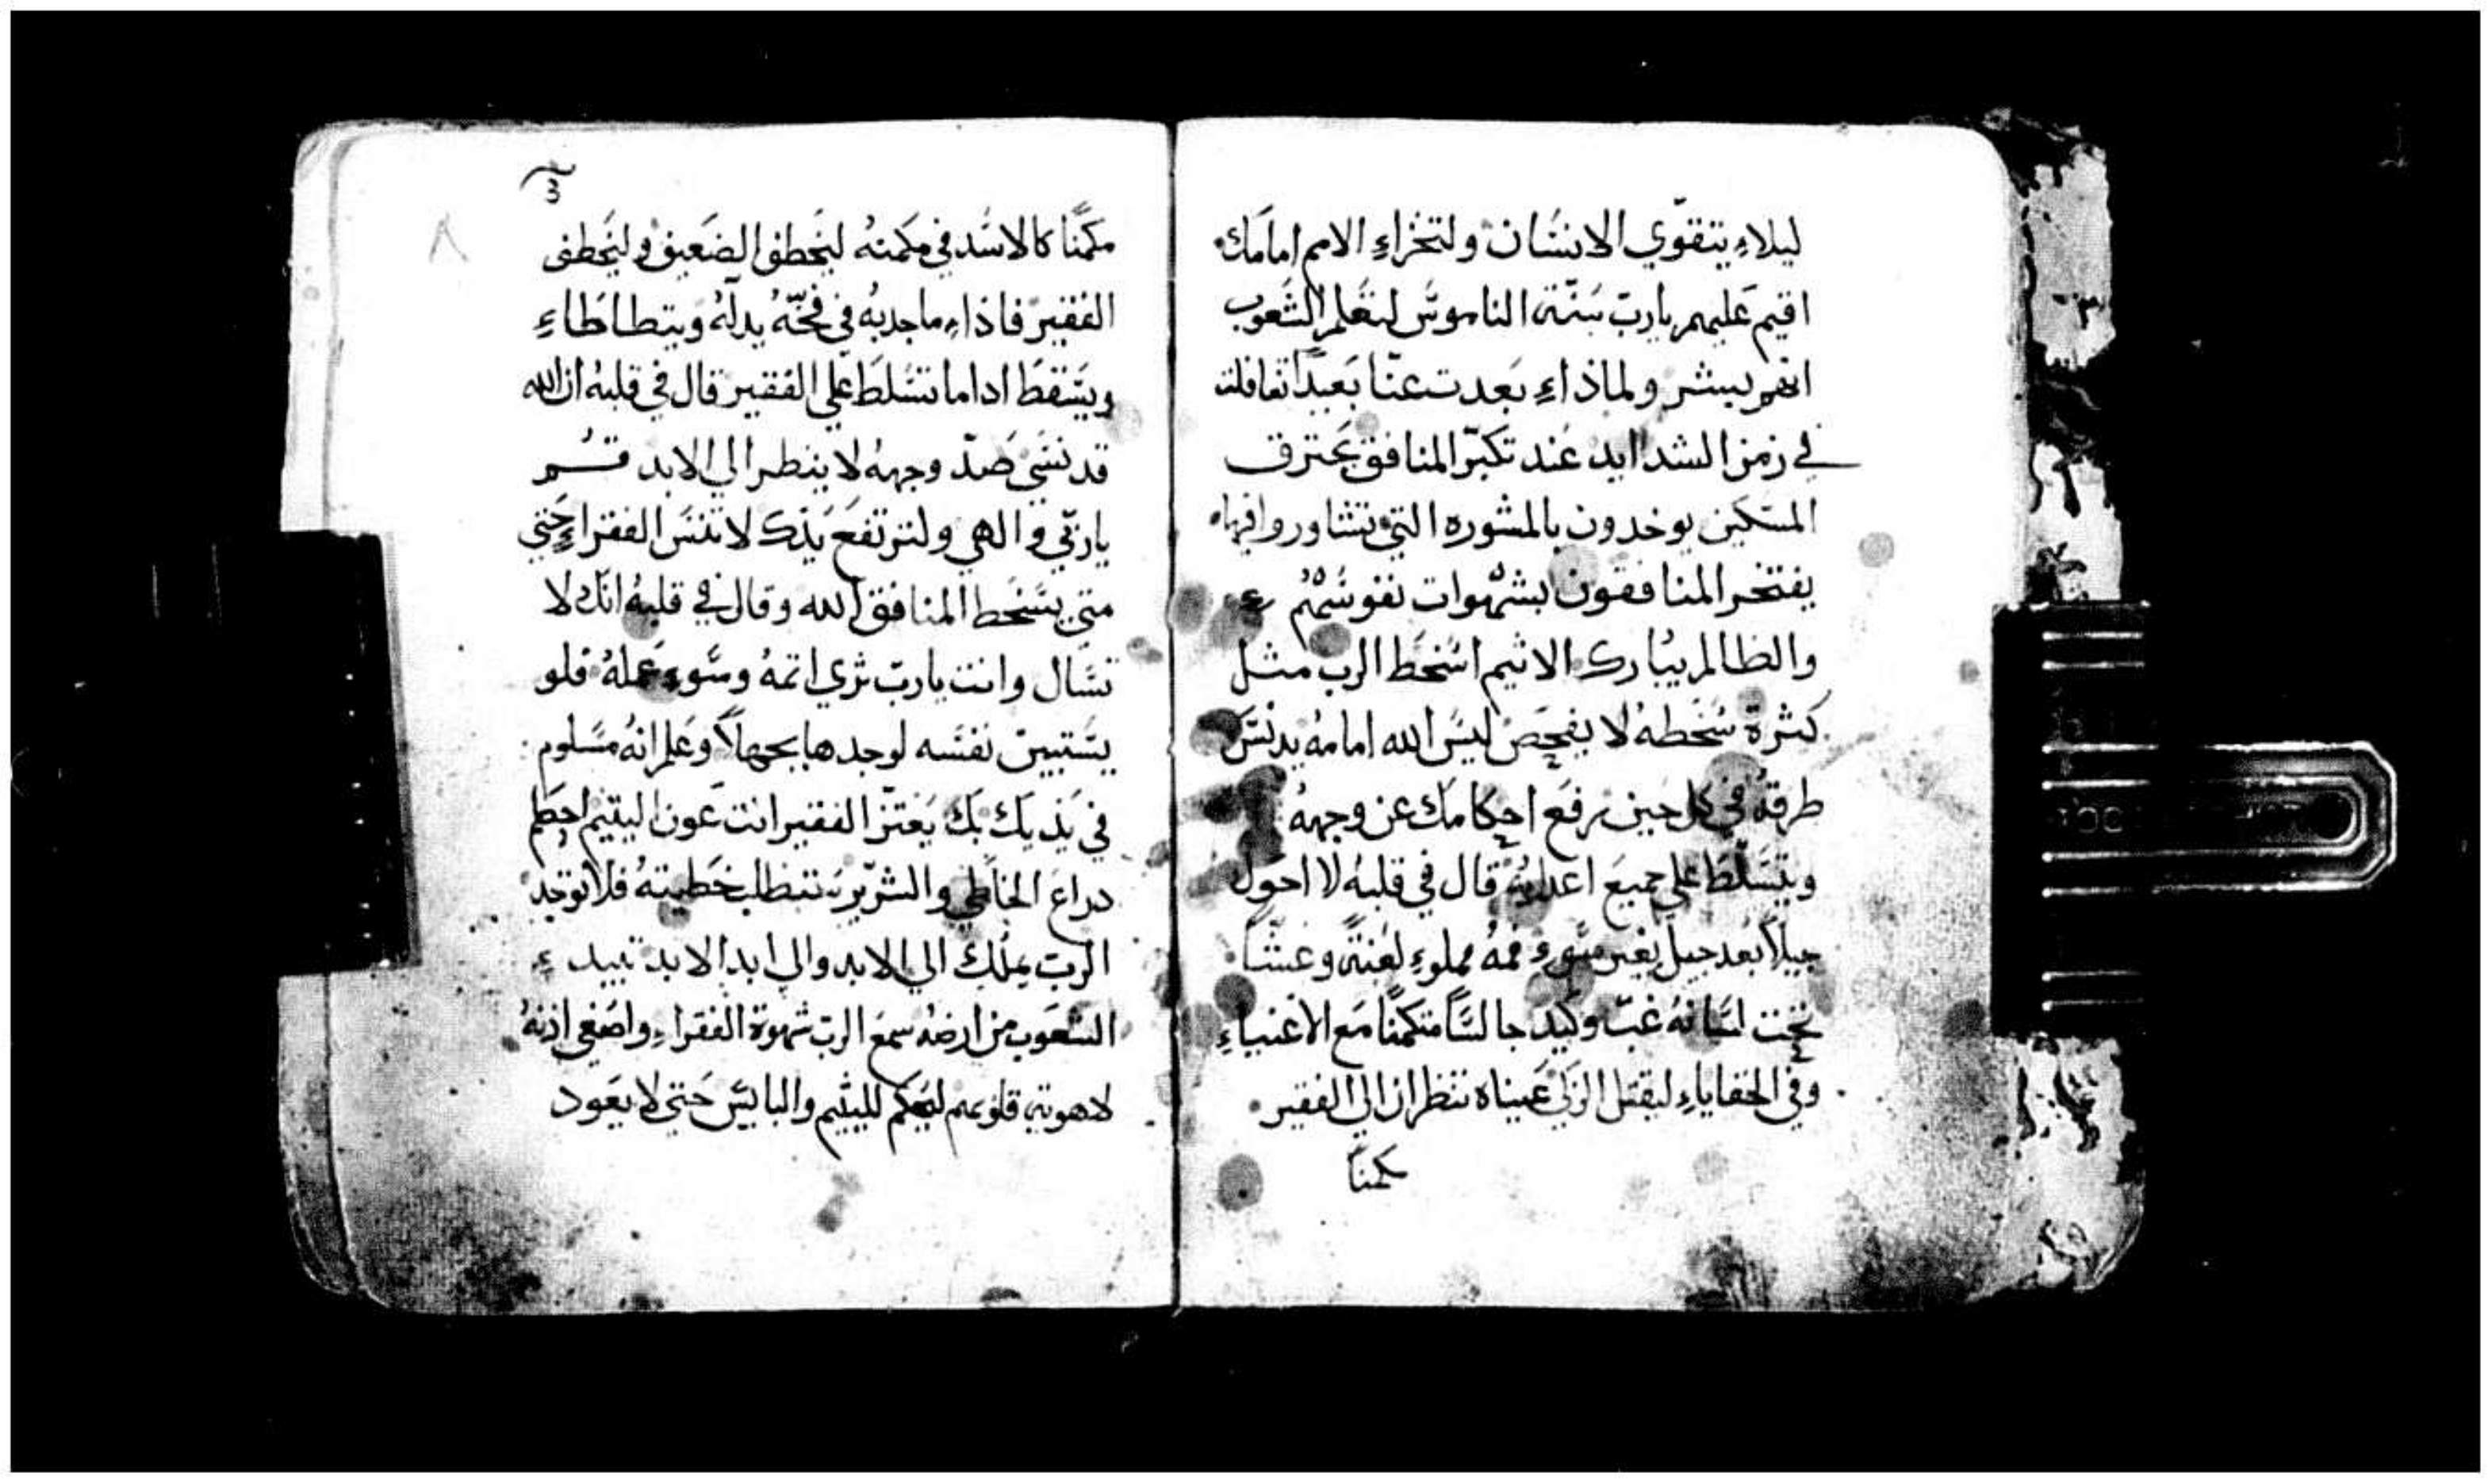 ليلاء يتقوّي الانسان ولتخزاءِ الامم امامك
اقيم عليهم يارب سنّة الناموس لتعلم الشعوب
انهم بشر ولماذاءِ بعدت عنّا بعيداً تغافلت
في زمن الشدايد عند تكبّر المنافق يحترق
المسكين يوخدون بالمشوره التي تشاوروا فيها
يفتخر المنافقون بشهوات نفوسهم
والظالم يبارك الاثيم اسخط الرب مثل
كثرة سخطه لا يفحص ليس الله امامه يدنس
طرقه في كل حين ترفع احكامك عن وجهه
ويتسلط علي جميع اعدايه قال في قلبه لا احول
جيلاً بعد جيل بغير سوء فمه مملوءِ لعنةً وغشاً
تحت لسانه غبّ وكيد جالسًا متكمنًا مع الاغنياءِ
وفي الخفاياءِ ليقتل الزكي عيناه تنظران الي الفقير
كمناً
مكمنًا كالاسد في مكمنه ليخطف الضعيف وليخطف
الفقير فاذاءِ ماجدبه في فخّه يدلّه ويتطاطاءِ
ويسقط اداما تسلط علي الفقير قال في قلبه ان الله
قد نسي صدّ وجهه لا ينظر الي الابد قم
ياربّي والهي ولترتفع يدك لا تنس الفقراءِ حتي
متي يسخط المنافق الله وقال في قلبه انك لا
تسال وانت يارب تري اتمه وسوء عمله فلو
يستبين نفسه لوجدها بجهالاً وعلم انه مسلوم
في يديك بك يعتز الفقير انت عون اليتيم احطم
دراع الخاطي والشرير تتطلب خطيته فلا توجد
الرب يملك الي الابد والي ابد الابد تبيد
الشعوب من ارضه سمع الرب شهوة الفقراءِ واصغي اذنه
لاهوته قلوبهم ليحكم لليتيم والبايس حتي لا يعود